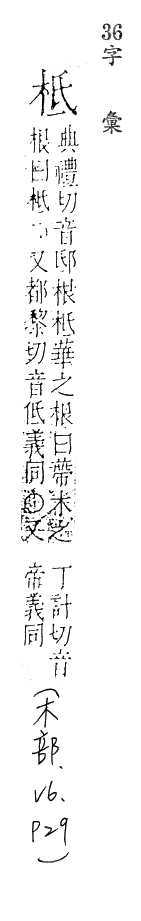 36
字彙
柢
典禮切音邸根柢華之根曰帶木之
根曰柢又都黎切音低義同又
丁計切音
帝義同
(木部、v6、p29)